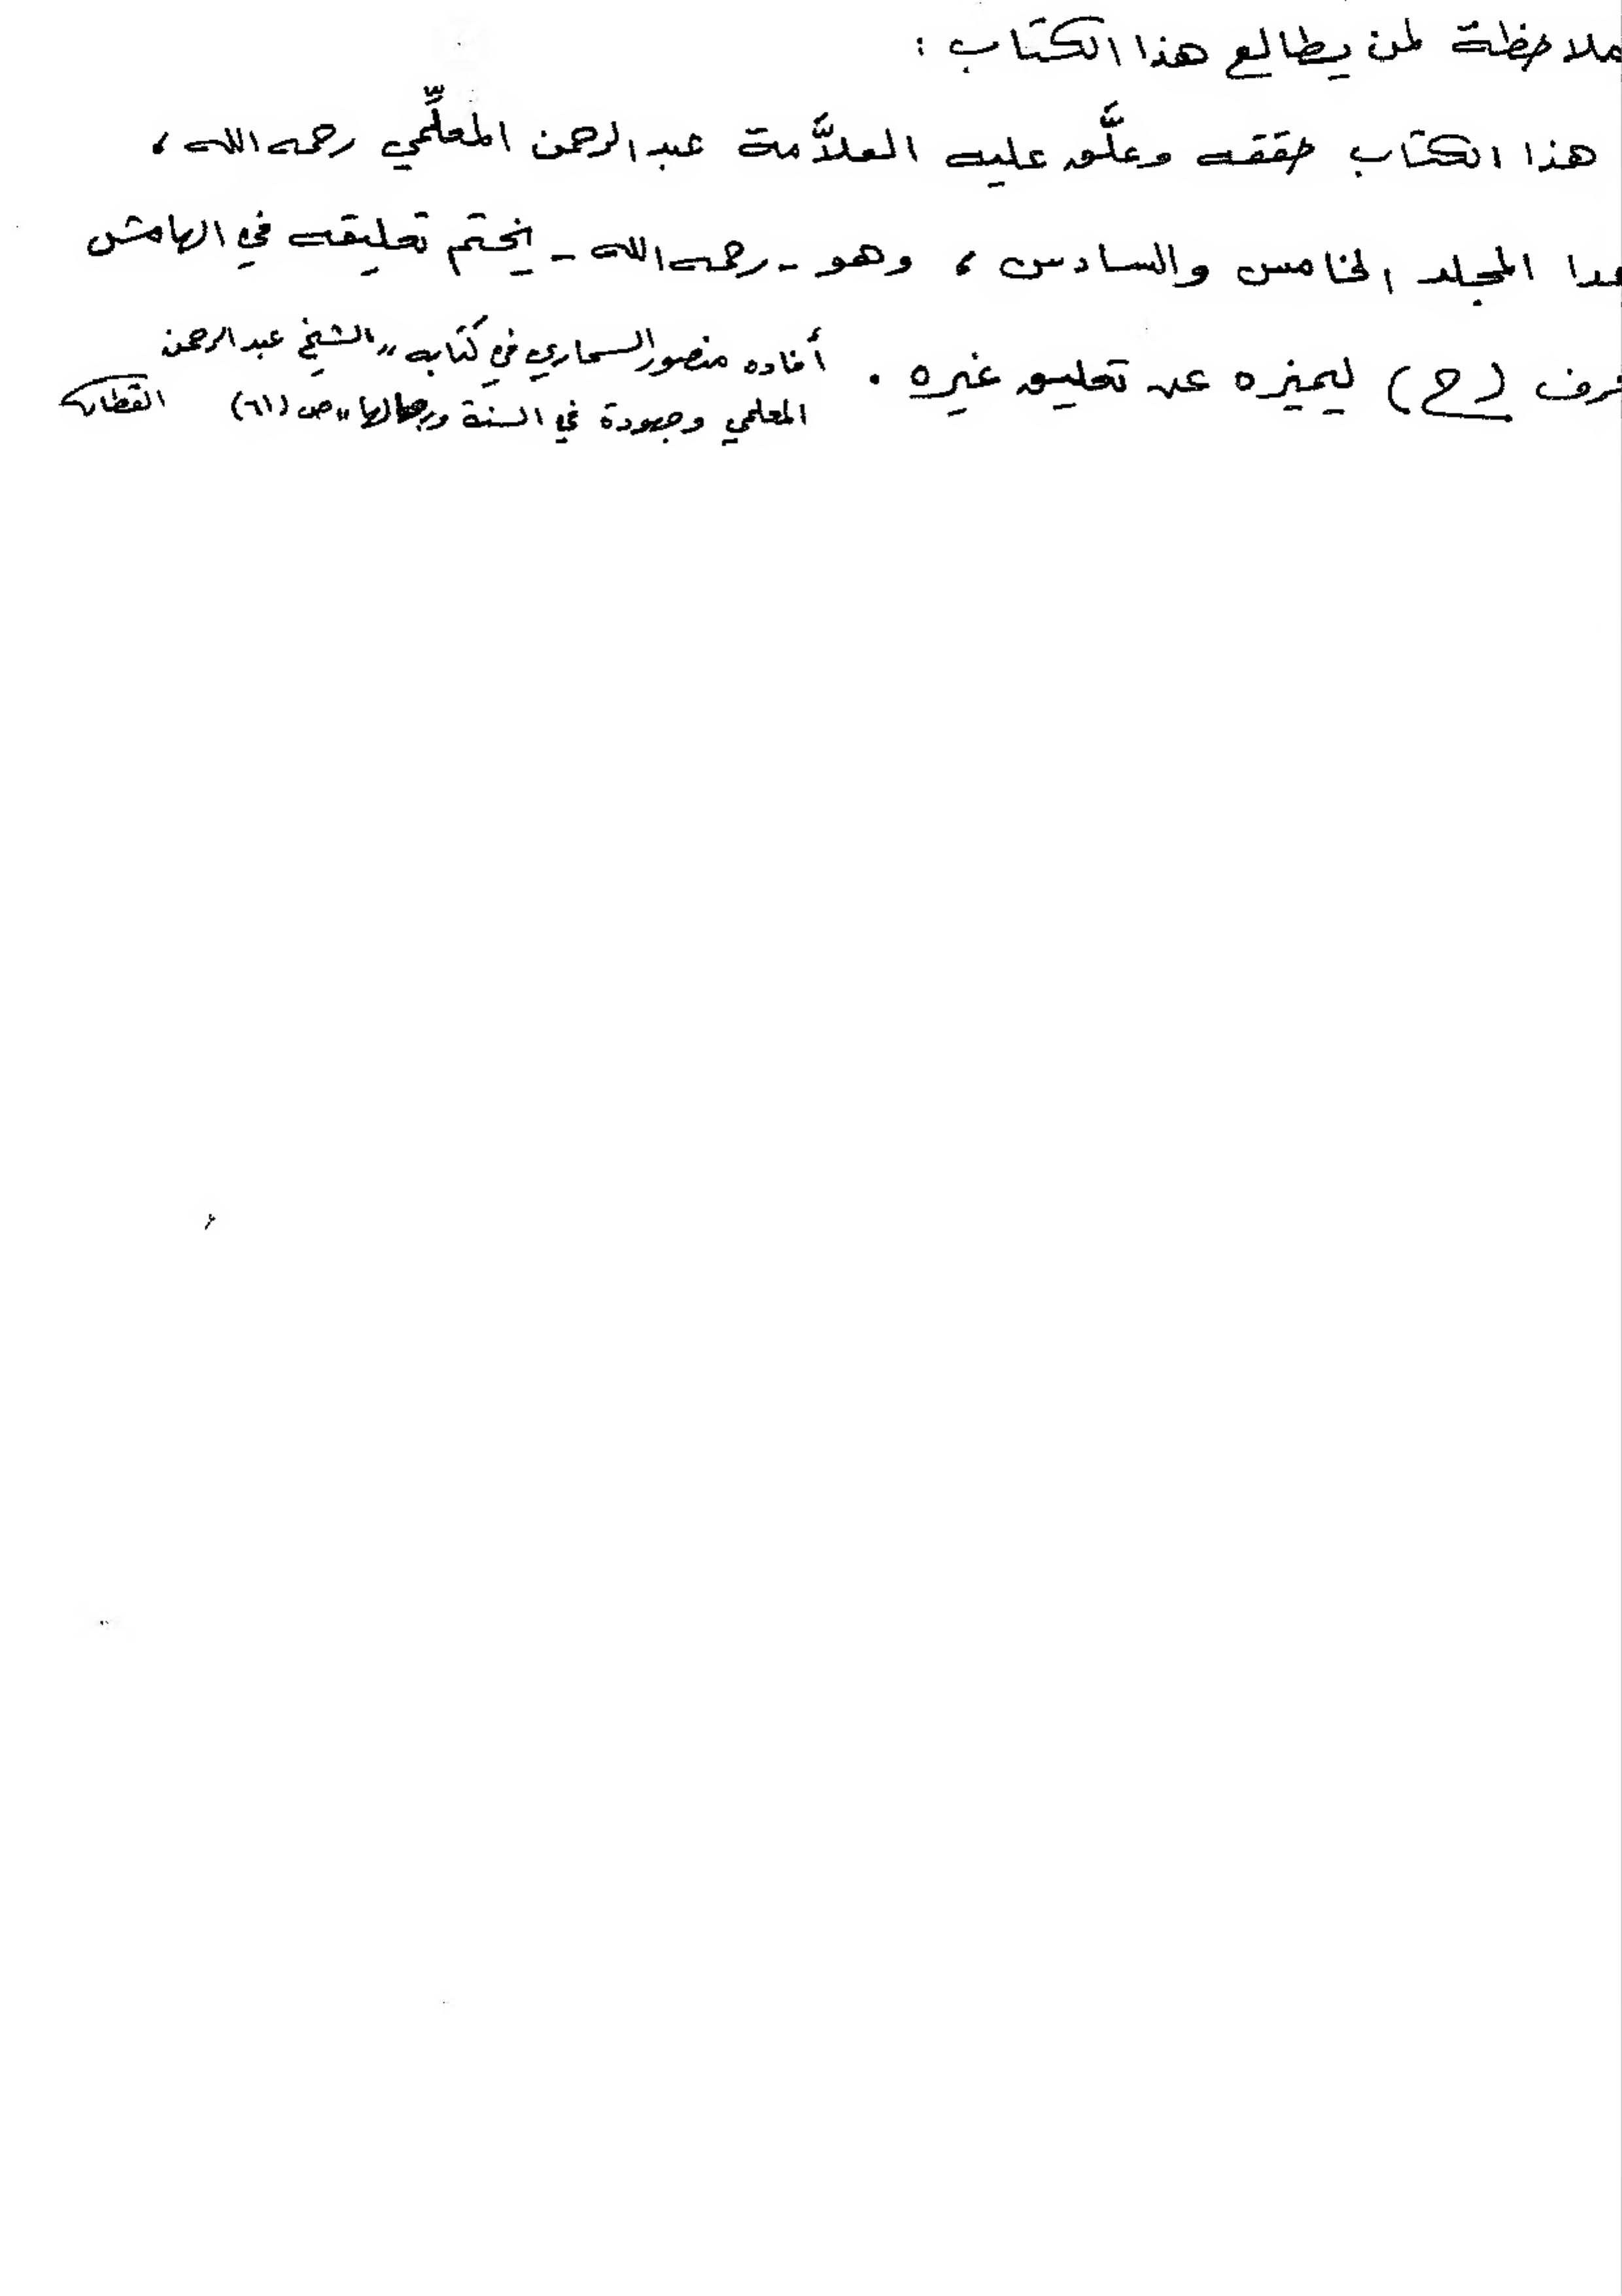 ملاحظة لمن يطالع هذا الكتاب :
هذا الكتاب حققه وعلَّق عليه العلاَّمة عبد الرحمن المعلِّمي رحمه الله ،
عدا المجلد الخامس والسادس ، وهو - رحمه الله - يختم تعليقه في الهامش
حرف (ح) ليميزه عن تعليق غيره .
أفاده منصور السماري في كتابه "الشيخ عبد الرحمن
المعلمي وجهودة في السنة ورجالها" ص (٦١) القطان